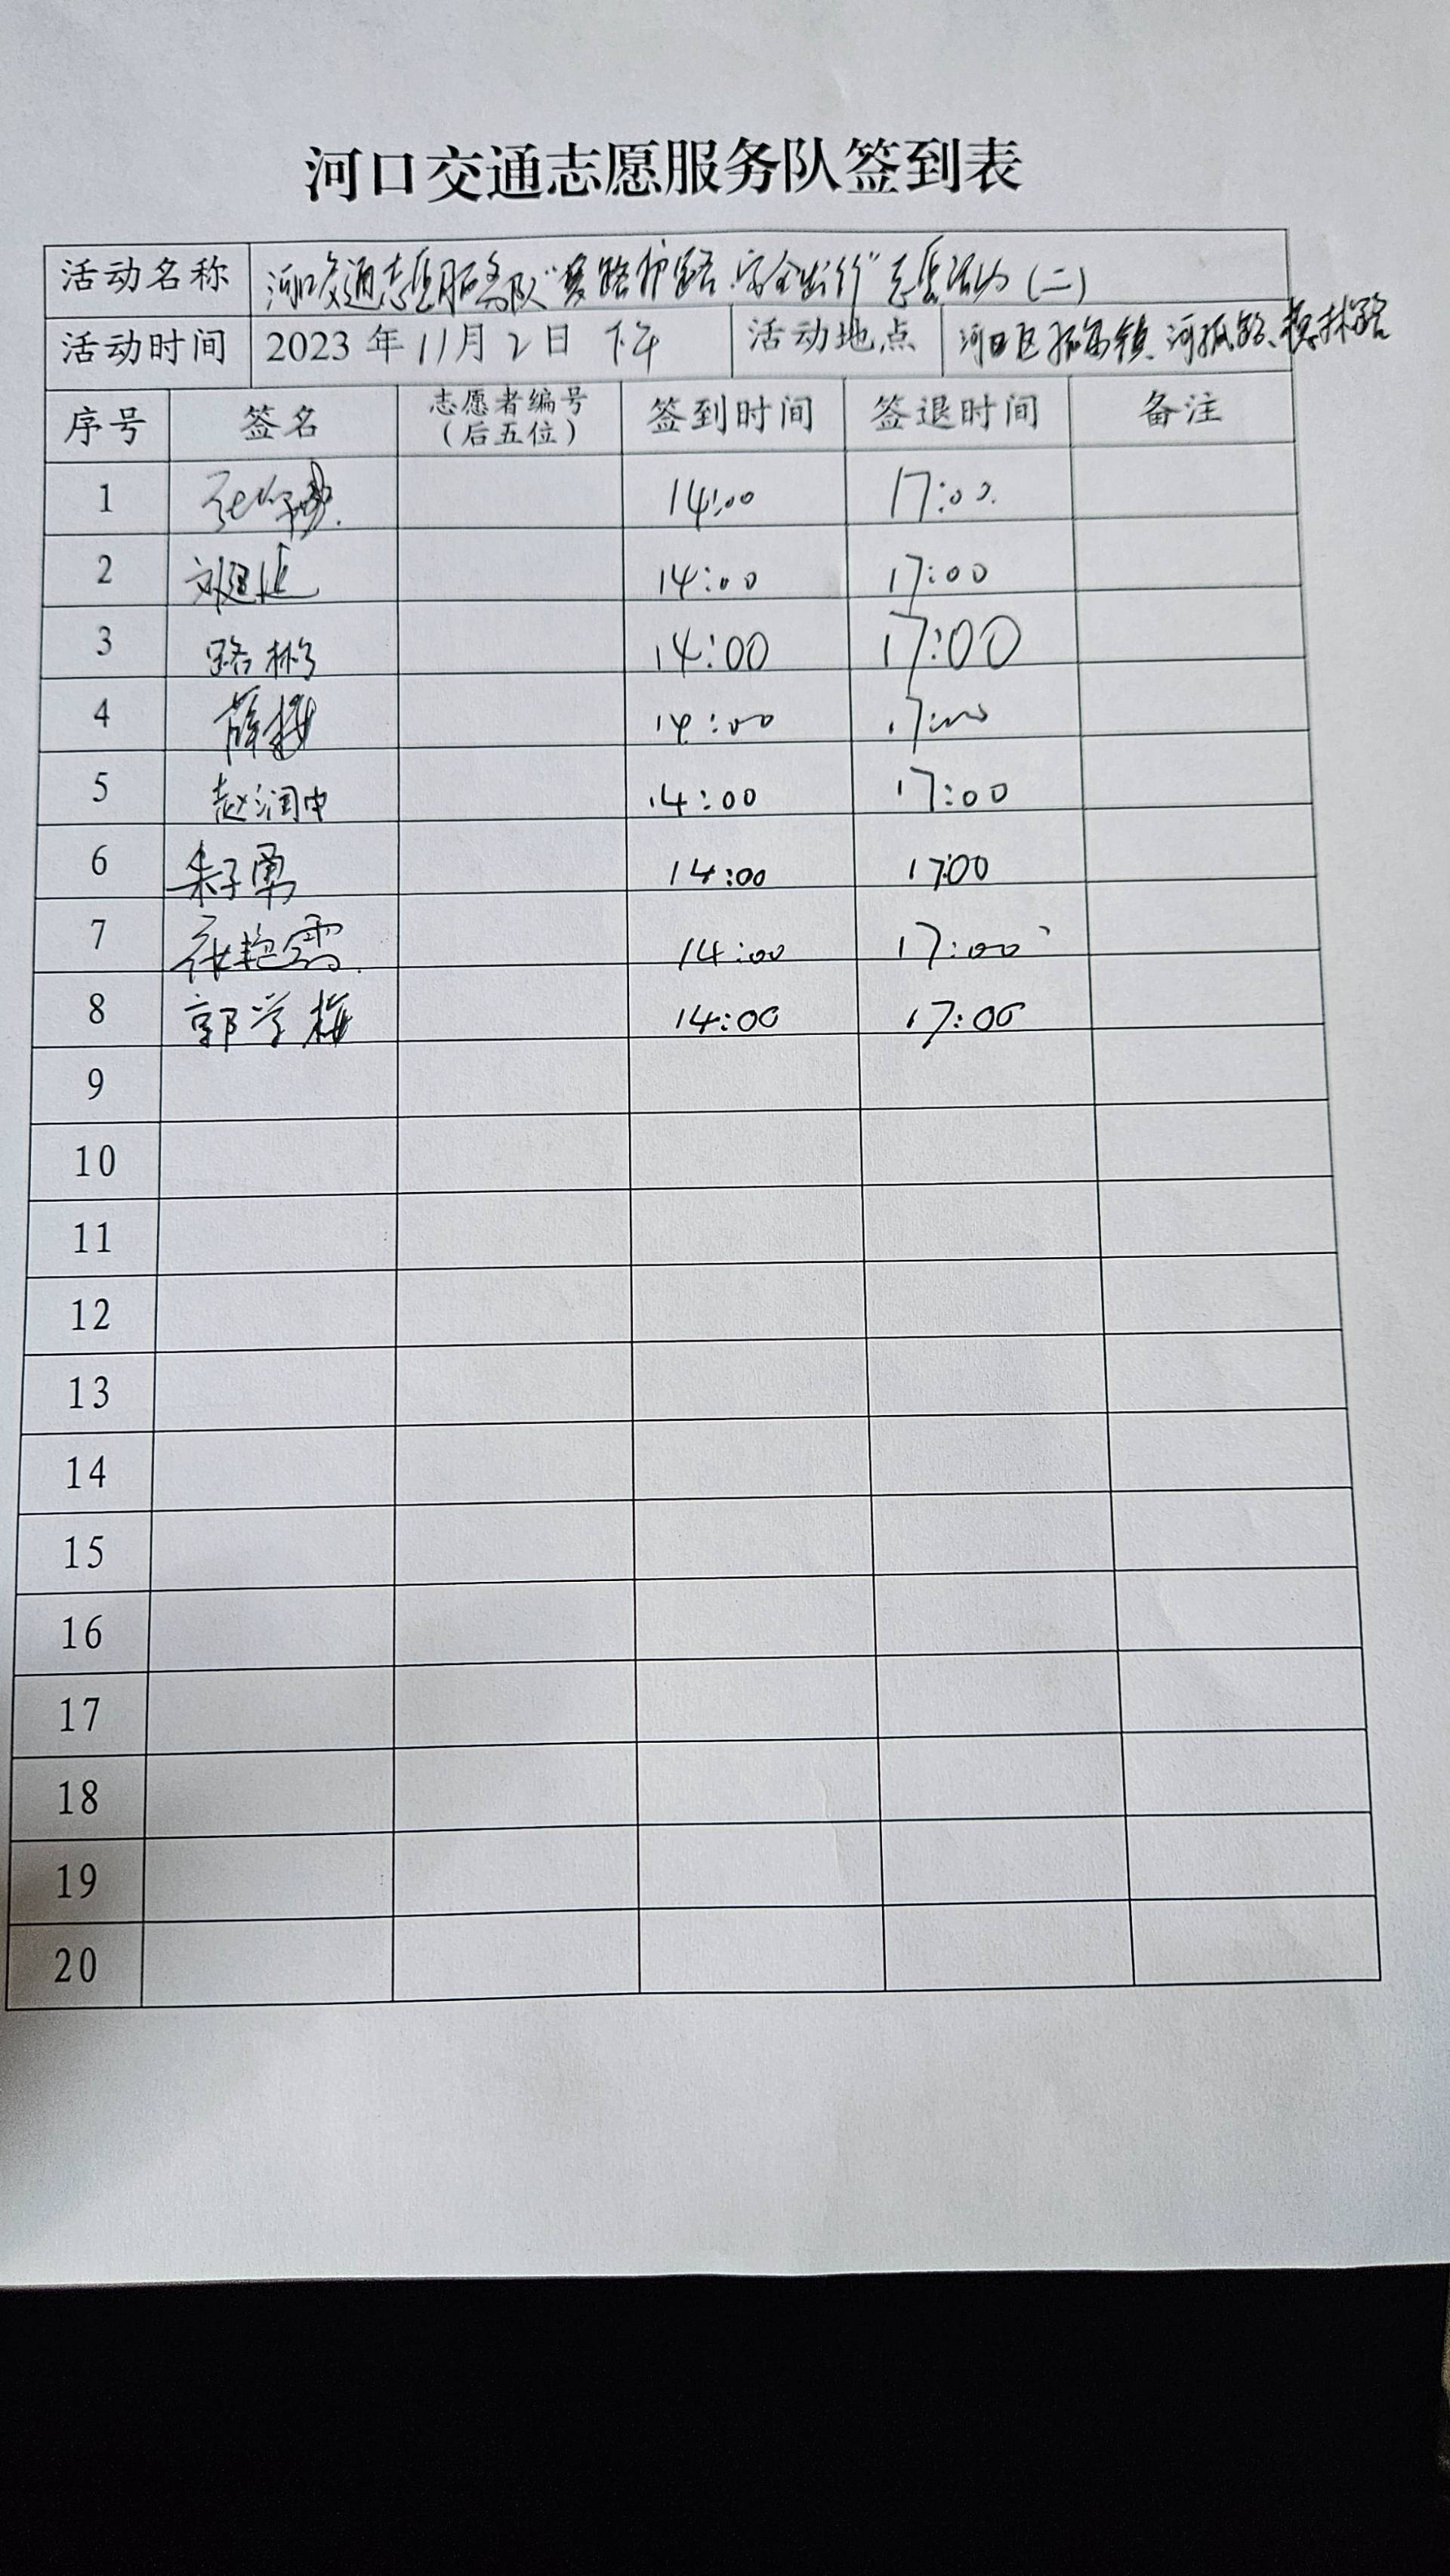 河口交通志愿服务队签到表
活动名称 河口交通志愿服务队"爱路护路、安全出行"志愿活动(二)
活动时间 2023年11月2日 下午 活动地点 河口区孤岛镇、河孤路、
序号 签名 志愿者编号(后五位) 签到时间 签退时间 备注
1 14:00 17:00
2 14:00 17:00
3 路彬 14:00 17:00
4 薛梅 14:00 17:00
5 赵润中 14:00 17:00
6 朱子勇 14:00 17:00
7 张艳霞 14:00 17:00
8 郭学梅 14:00 17:00
9
10
11
12
13
14
15
16
17
18
19
20